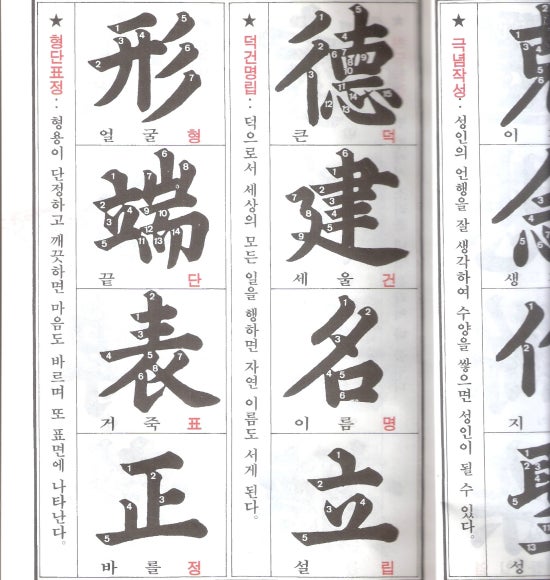 이
생
지
성
★ 극념작성 : 성인의 언행을 잘 생각하여 수양을 쌓으면 성인이 될 수 있다.
德
큰 덕
建
세울 건
名
이름 명
立
설 립
★ 덕건명립 : 덕으로서 세상의 모든 일을 행하면 자연 이름도 서게 된다.
形
얼굴 형
端
끝 단
表
거죽 표
正
바를 정
★ 형단표정 : 형용이 단정하고 깨끗하면 마음도 바르며 또 표면에 나타난다.